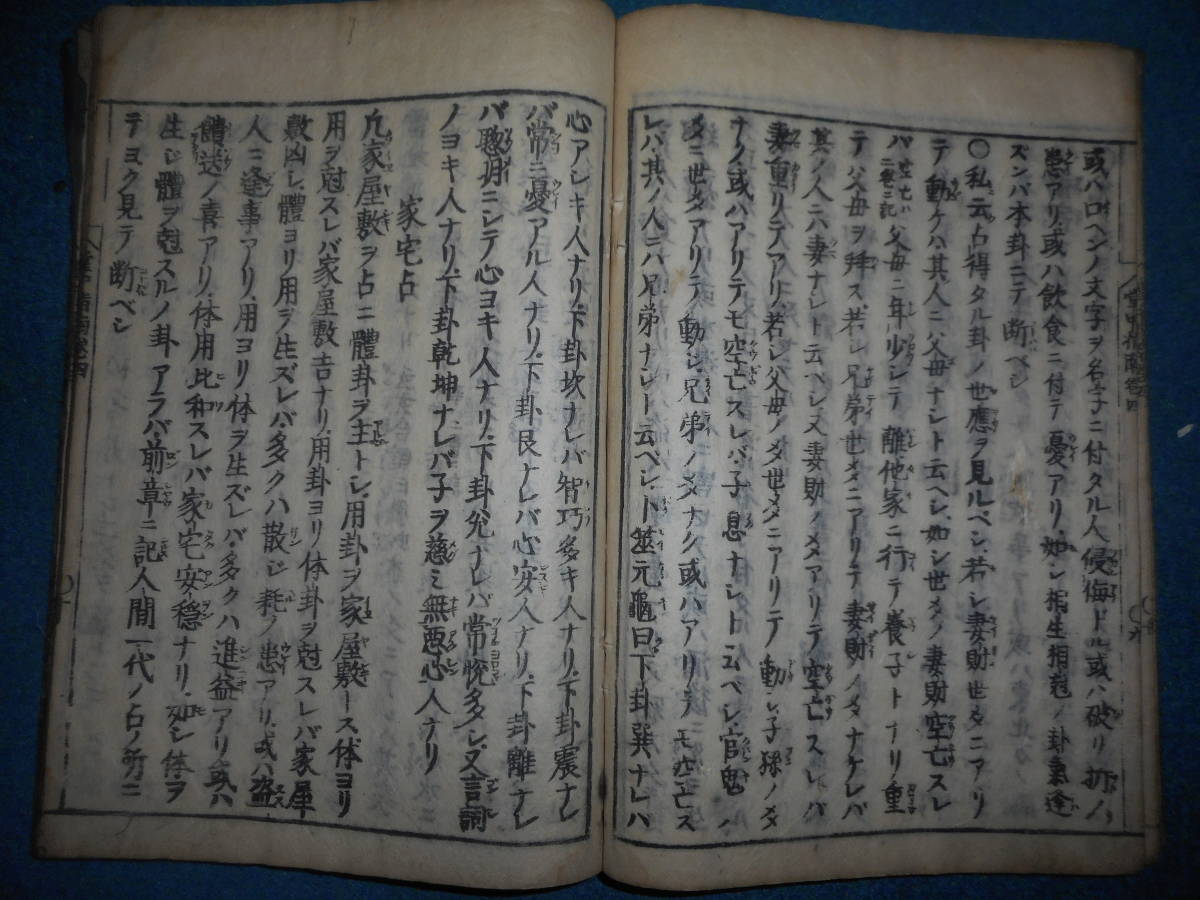 或ハ口ヘンノ文字ヲ名字ニ付タル人侵侮ドル或ハ破リ折ノ
患アリ或ハ飲食ニ付テ憂アリ如シ相生相剋ノ卦氣逢
ズンバ本卦ニテ断ベシ
〇私云占得タル卦ノ世應ヲ見ルベシ若シ妻財世メニアリ
テ動ケハ其人ニ父母ナシト云ヘシ如シ世メノ妻財空亡スレ
バ父母ニ年少シテ離他家ニ行テ養子トナリ重
テ父母ヲ拜ス若シ兄弟世メニアリテ妻財ノメナケレバ
其ノ人ニハ妻ナシト云ヘシ又妻財ノメアリテ空亡スレバ
妻重リテアリ若シ父母ノメ世メニアリテ動シ子孫ノメ
ナク或ハアリテモ空亡スレバ子息ナシト云ベシ官鬼ノ
メニ世メアリテ動シ兄弟ノメナク或ハアリテモ空亡ス
レバ其ノ人ニハ兄弟ナシト云ベシト筮元龜曰下卦巽ナレバ
心アシキ人ナリ下卦坎ナレバ智巧多キ人ナリ下卦震ナレ
バ常ニ憂アル人ナリ下卦艮ナレバ心安人ナリ下卦離ナレ
バ聰明ニシテ心ヨキ人ナリ下卦兌ナレバ常悦多シ又言詞
ノヨキ人ナリ下卦乾坤ナレバ子ヲ慈ミ無悪心人ナリ
家宅占
凢家屋敷ヲ占ニ體卦ヲ主トシ用卦ヲ家屋敷トス体ヨリ
用ヲ尅スレバ家屋敷吉ナリ用卦ヨリ体卦ヲ尅スレバ家屋
敷凶シ體ヨリ用ヲ生ズレバ多クハ散シ耗ノ患アリ或ハ盗
人ニ逢事アリ用ヨリ体ヲ生ズレバ多クハ進益アリ或ハ
饋送ノ喜アリ体用比和スレバ家宅安穏ナリ如シ体ヲ
生シ體ヲ尅スルノ卦アラバ前章ニ記人間一代ノ占ノ所ニ
テヨク見テ断ベシ